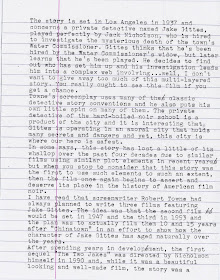 The story is set in Los Angeles in 1937 and
concerns a private detective named Jake Gittes,
played perfectly by Jack Nicholson, who is hired
to investigate the mysterious death of the town's
Water Commissioner. Gittes thinks that he's been
hired by the Water Commissioner's widow, but later
learns that he's been played. He decides to find
out who has set him up and his investigation leads
his into a complex web involving...well, I don't
want to give away too much of this multi-layered
story. You really ought to see this film if you
get a chance.
Towne's screenplay uses many of the classic
detective story conventions and he also puts his
own little spin on many of them. The private
detective of the hard-boiled noir school is a
product of his city and it is interesting that,
Gittes is operating in an amoral city that holds
many secrets and dangers and yet, this city is
where our hero is safest.
In some ways, this story has lost a little of its
whallop over the past four decades due to similar
films using similar plot elements in recent years
but when you stop to consider how this story was
the first to use such elements to such an extent,
then the film once again begins to assert and
deserve its place in the history of American film
noir.
I have read that screenwriter Robert Towne had
always planned to write three films featuring
Jake Gittes. The idea was that the second film
would be set in 1947 and the third in 1953 and
the plan was to actually film them 10 to 20 years
after "Chinatown" in an effort to show how the
character of Jake Gittes has aged naturally over
the years.
After spending years in development, the first
sequel "The Two Jakes" was directed by Nicholson
himself in 1990 and, while it was a beautiful
looking and well-made film, the story was a